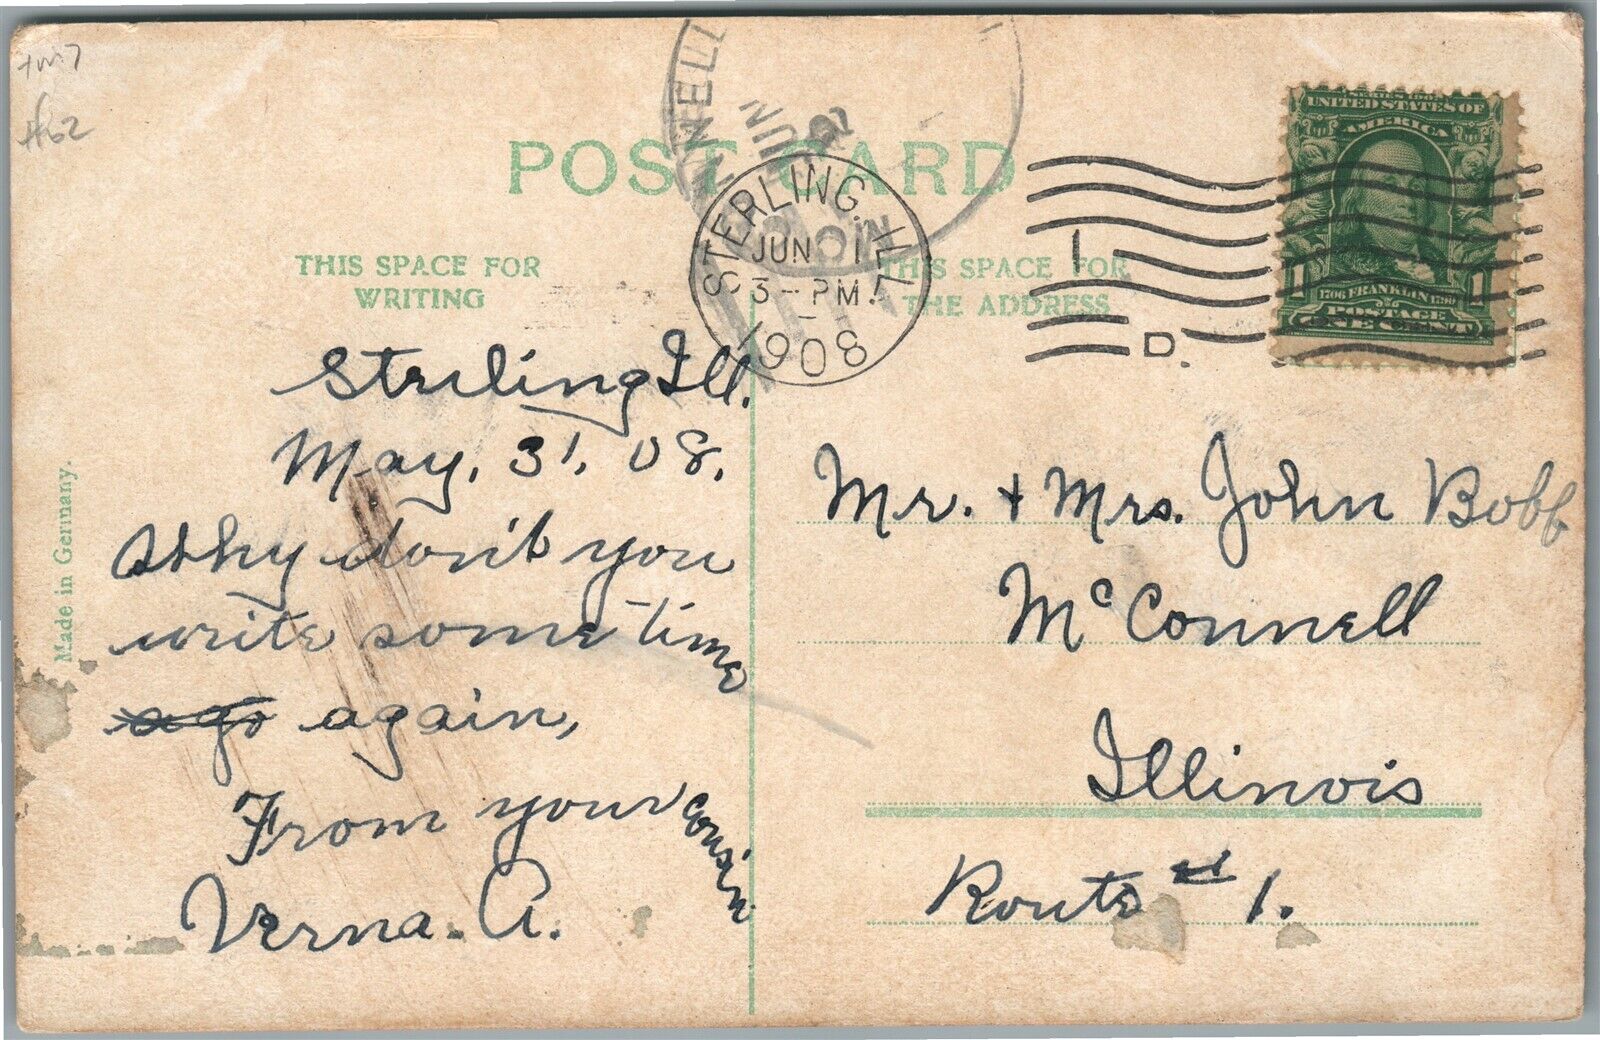 #62
POST CARD
THIS SPACE FOR
WRITING
THIS SPACE FOR
THE ADDRESS
STERLING, ILL.
JUN 1
3-PM
1908
D.
UNITED STATES OF
AMERICA
1706 FRANKLIN 1790
POSTAGE
1 ONE CENT 1
Made in Germany.
Sterling Ill.
May, 31, 08.
Why don't you
write some time
ago again,
From your cousin
Verna. A.
Mr. + Mrs. John Bobb
McConnell
Illinois
Route # 1.